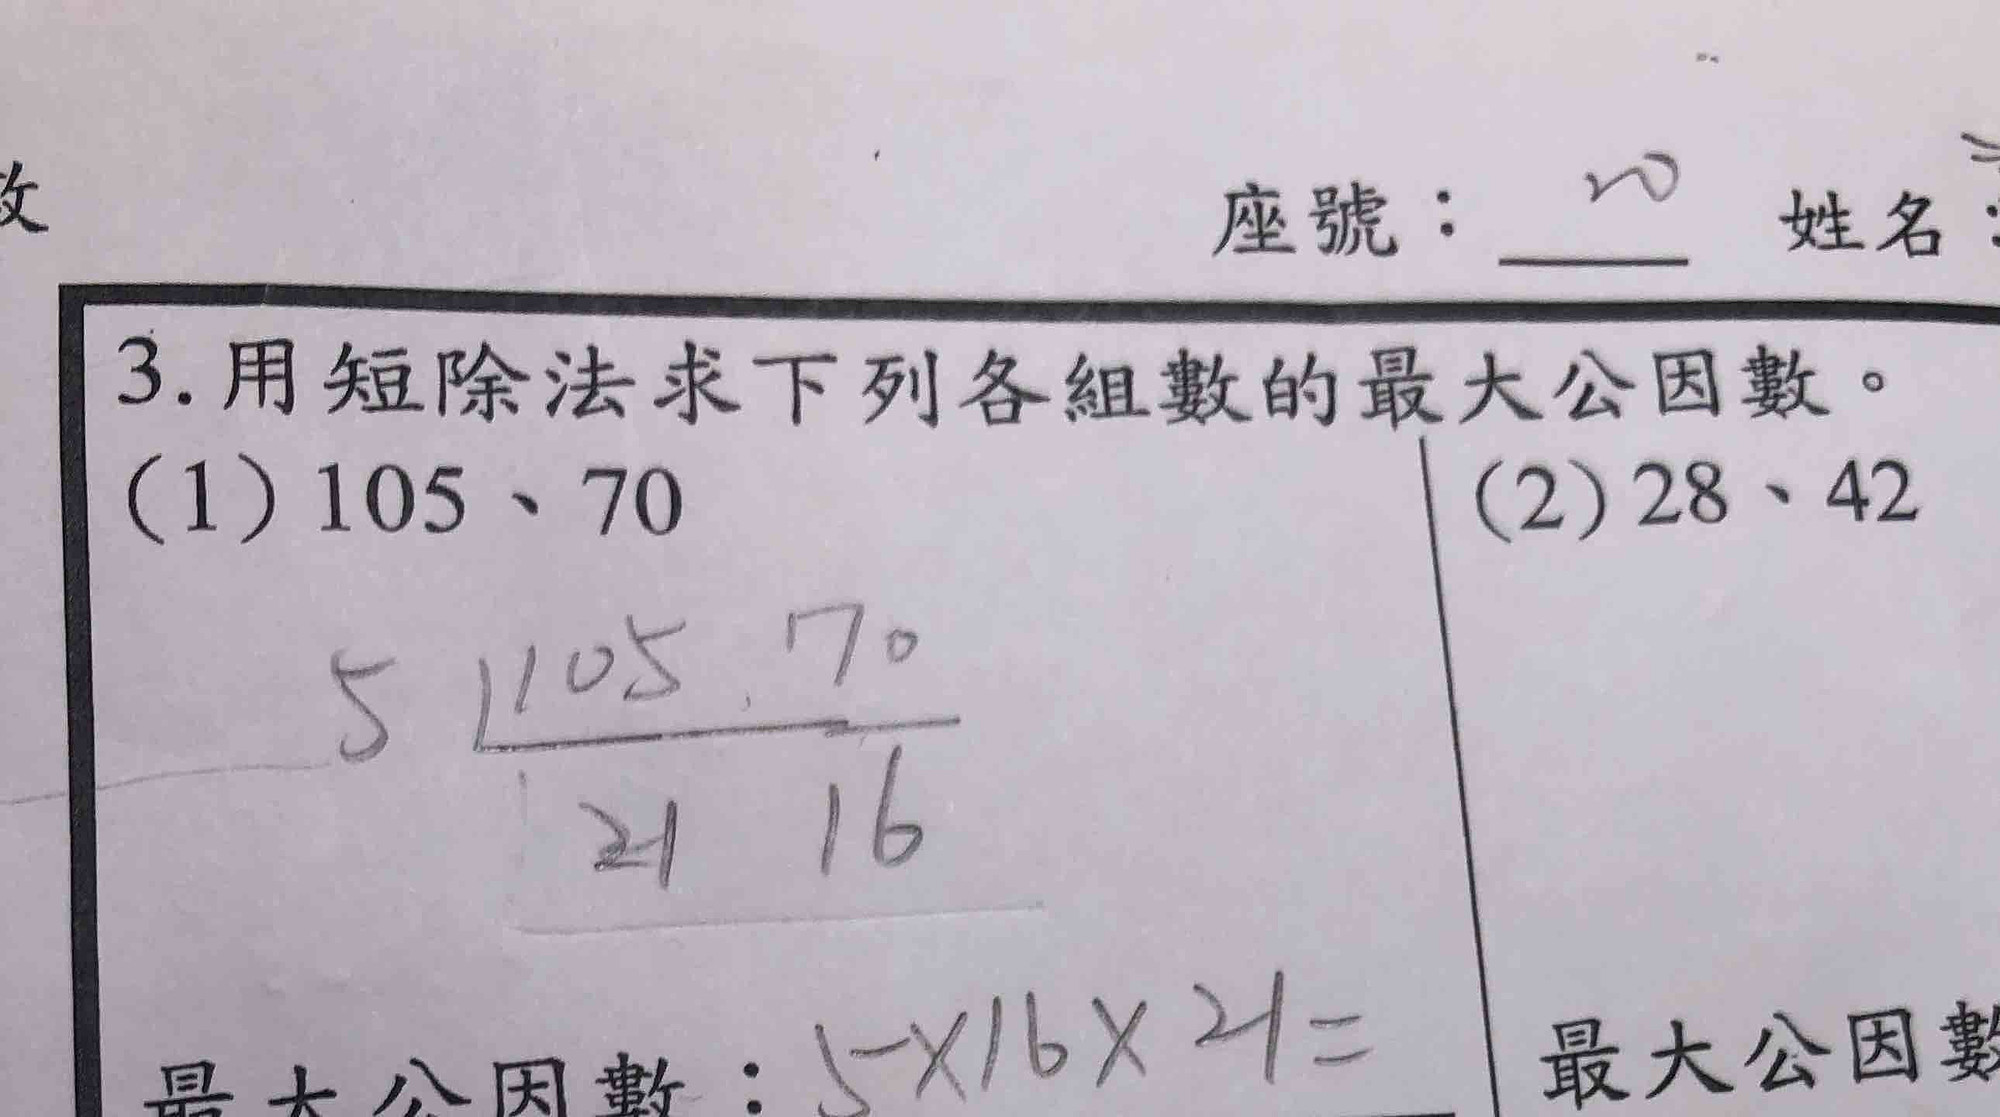 座號：20 姓名：
3.用短除法求下列各組數的最大公因數。
(1)105、70
(2)28、42
5 105.70
21 16
最大公因數：5×16×21=
最大公因數